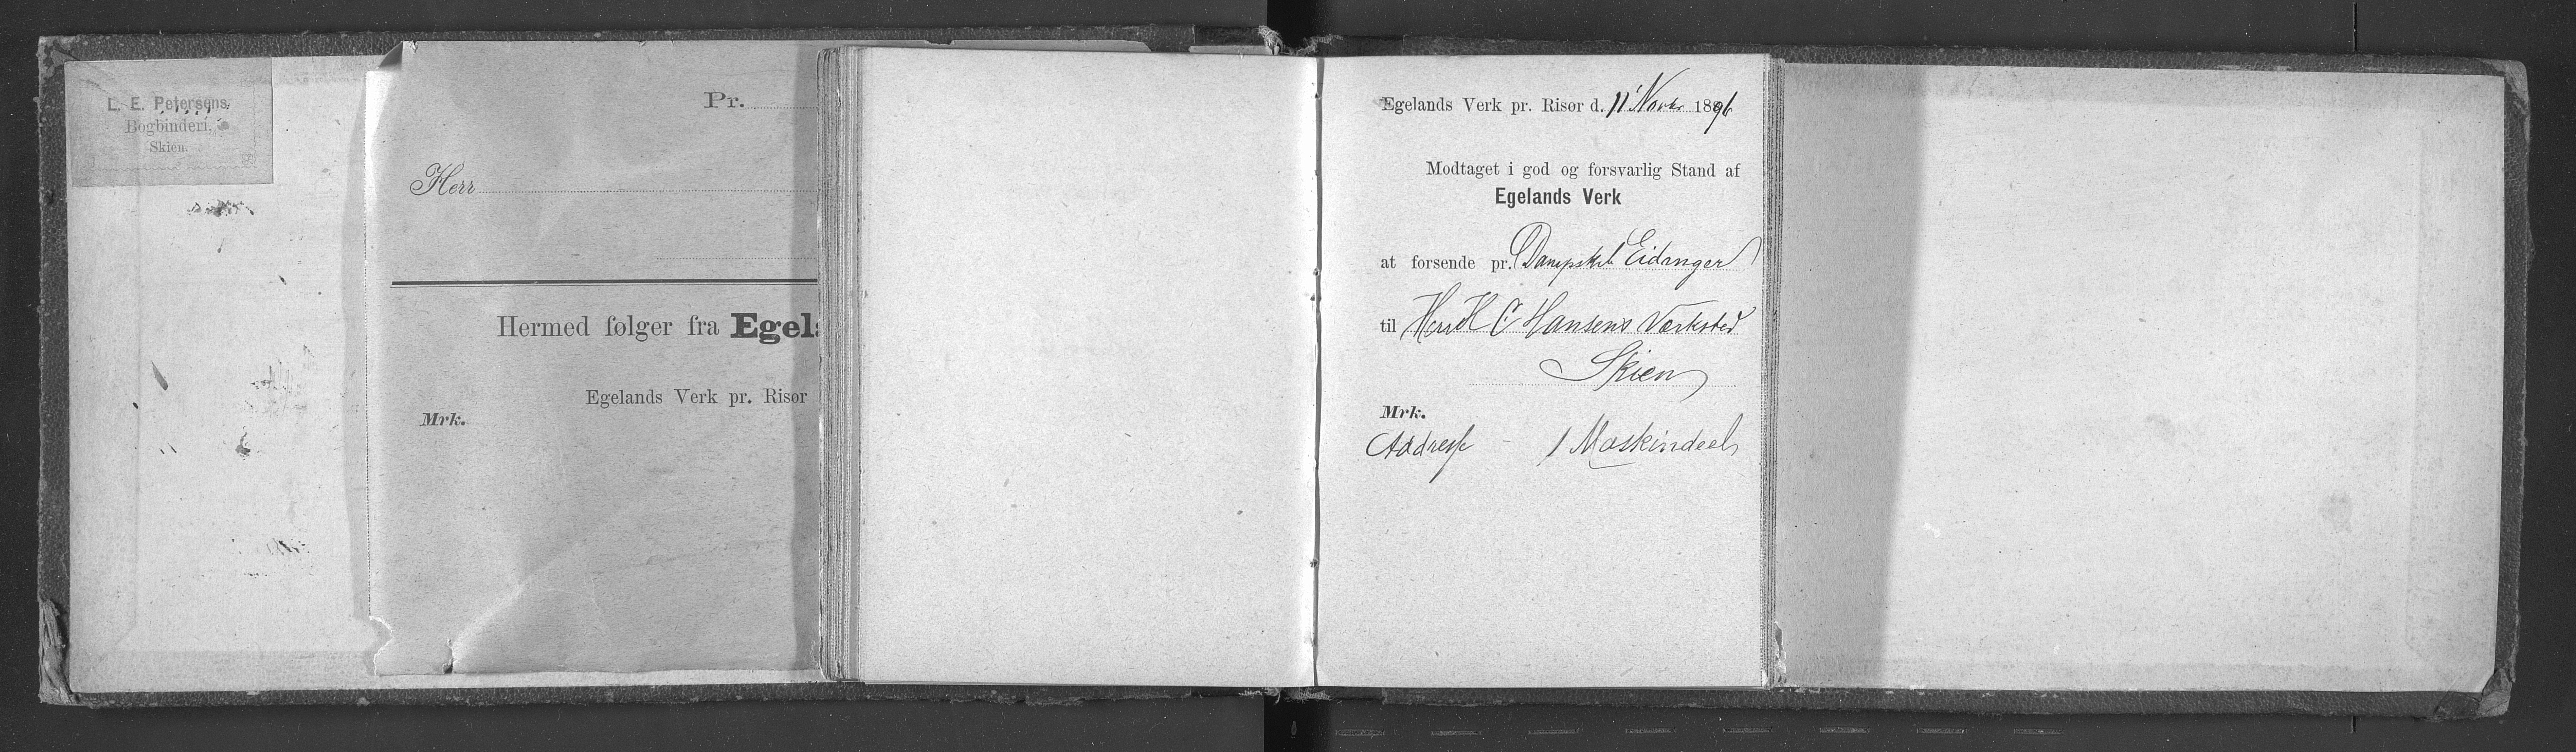 L. E. Petersens
Bogbinderi,
Skien.
Pr.
Herr
Hermed følger fra Egela
Egelands Verk pr. Risør
Mrk.
Egelands Verk pr. Risør d. 11' Novbr 1891
Modtaget i god og forsvarlig Stand af
Egelands Verk
at forsende pr. Dampskb Eidanger
til Herr H C Hansens Værksted
Skien
Mrk.
Addresse - 1 Maskindeel